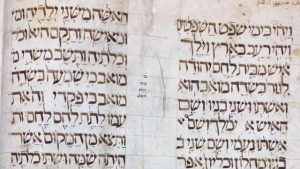 ויהי בימי שפט השפטים
ויהי רעב בארץ וילך
איש מבית לחם יהודה
לגור בשדי מואב הוא
ואשתו ושני בניו ושם
האיש אלימלך ושם
אשתו נעמי ושם שני
בניו מחלון וכליון
האשה משני ילדיה
ומאישה ותקם היא
וכלתיה ותשב משדי
מואב כי שמעה בשדה
מואב כי פקד
לתת להם לחם
ותצא מן המקום אשר
היתה שמה ושתי